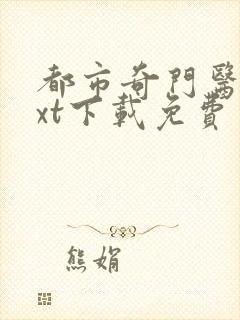 都市奇門醫
xt下載免費
熊娟